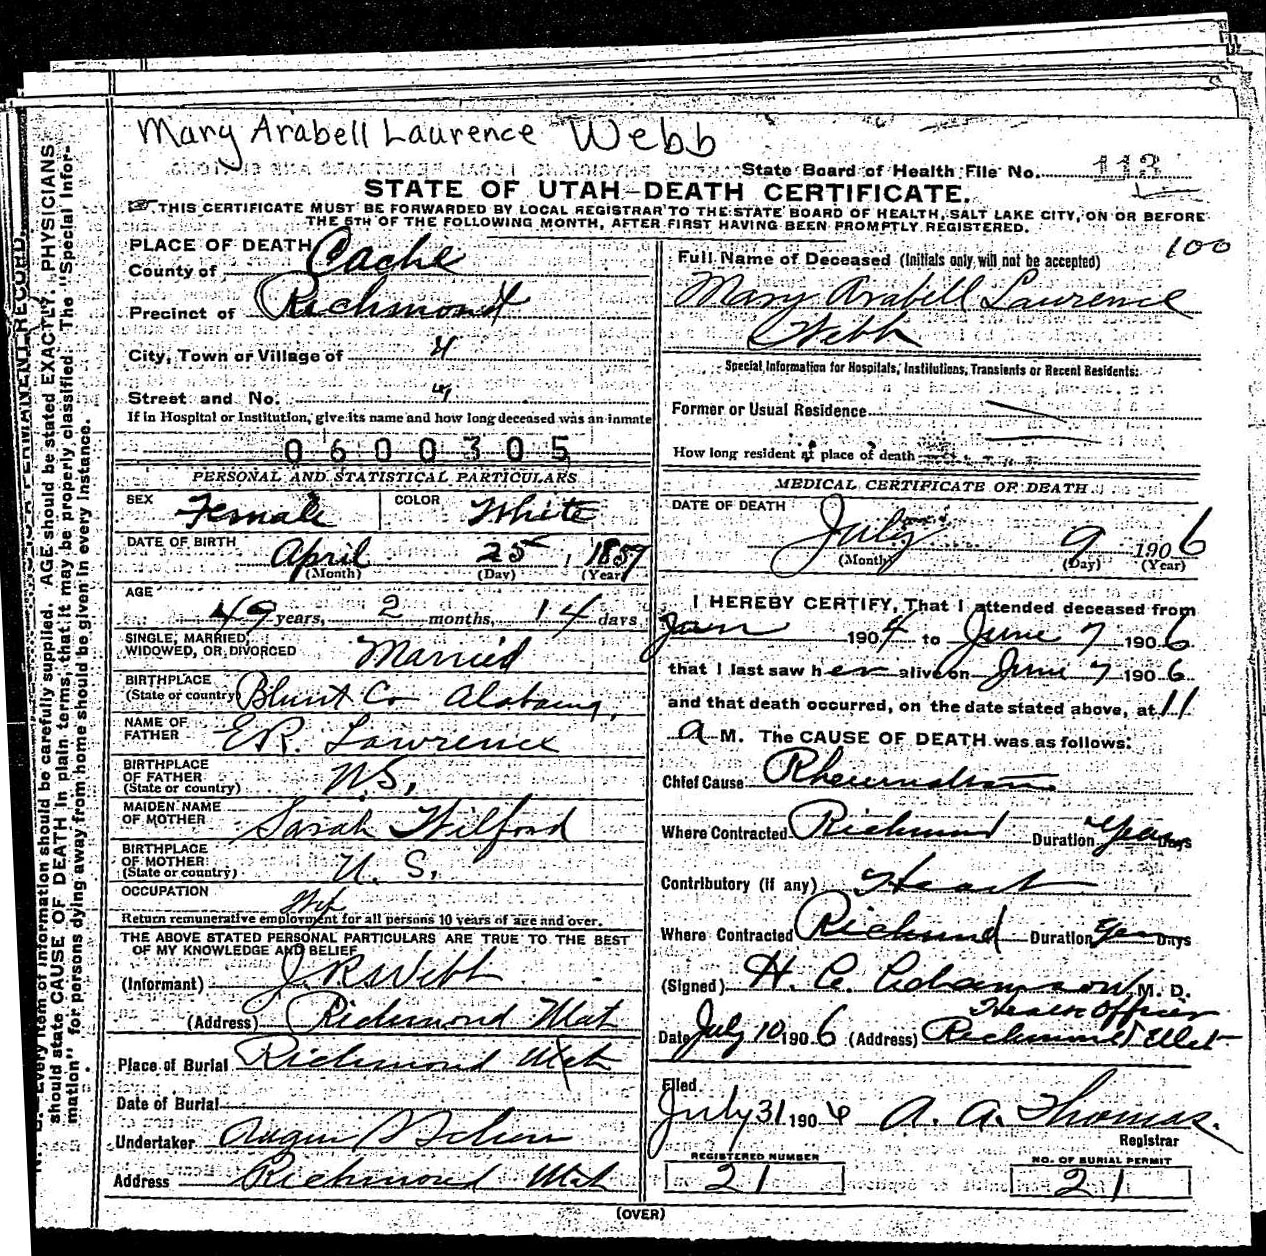 Mary Arabell Laurence Webb
State Board of Health File No. 113
STATE OF UTAH—DEATH CERTIFICATE.
THIS CERTIFICATE MUST BE FORWARDED BY LOCAL REGISTRAR TO THE STATE BOARD OF HEALTH, SALT LAKE CITY, ON OR BEFORE
THE 5TH OF THE FOLLOWING MONTH, AFTER FIRST HAVING BEEN PROMPTLY REGISTERED.
100
PLACE OF DEATH
County of Cache
Precinct of Richmond
City, Town or Village of "
Street and No. "
If in Hospital or Institution, give its name and how long deceased was an inmate
0600305
PERSONAL AND STATISTICAL PARTICULARS
SEX Female COLOR White
DATE OF BIRTH April 25, 1857
(Month) (Day) (Year)
AGE
49 years, 2 months, 14 days
SINGLE, MARRIED,
WIDOWED, OR DIVORCED Married
BIRTHPLACE
(State or country) Blunt Co Alabama,
NAME OF
FATHER E.R. Lawrence
BIRTHPLACE
OF FATHER
(State or country) U.S.
MAIDEN NAME
OF MOTHER Sarah Wilford
BIRTHPLACE
OF MOTHER
(State or country) U.S.
OCCUPATION
Return remunerative employment for all persons 10 years of age and over.
THE ABOVE STATED PERSONAL PARTICULARS ARE TRUE TO THE BEST
OF MY KNOWLEDGE AND BELIEF
(Informant) J.R. Webb
(Address) Richmond Utah
Place of Burial Richmond Utah
Date of Burial
Undertaker
Address Richmond Utah
Full Name of Deceased (Initials only will not be accepted)
Mary Arabell Lawrence
Webb
Special Information for Hospitals, Institutions, Transients or Recent Residents:
Former or Usual Residence
How long resident at place of death
MEDICAL CERTIFICATE OF DEATH
DATE OF DEATH
July 9 1906
(Month) (Day) (Year)
I HEREBY CERTIFY, That I attended deceased from
Jan 1904 to June 7 1906
that I last saw her alive on June 7 1906
and that death occurred, on the date stated above, at 11
a M. The CAUSE OF DEATH was as follows:
Chief Cause Rheumatism
Where Contracted Richmond Duration Years Days
Contributory (if any) Heart
Where Contracted Richmond Duration Years Days
(Signed) H. C. Adamson M. D.
Health Officer
Date July 10 1906 (Address) Richmond Utah
Filed
July 31 1906 A. A. Thomas.
Registrar
REGISTERED NUMBER
21
NO. OF BURIAL PERMIT
21
(OVER)
Every item of information should be carefully supplied. AGE should be stated EXACTLY. PHYSICIANS
should state CAUSE OF DEATH in plain terms, that it may be properly classified. The "Special Infor-
mation" for persons dying away from home should be given in every instance.
PERMANENT RECORD.